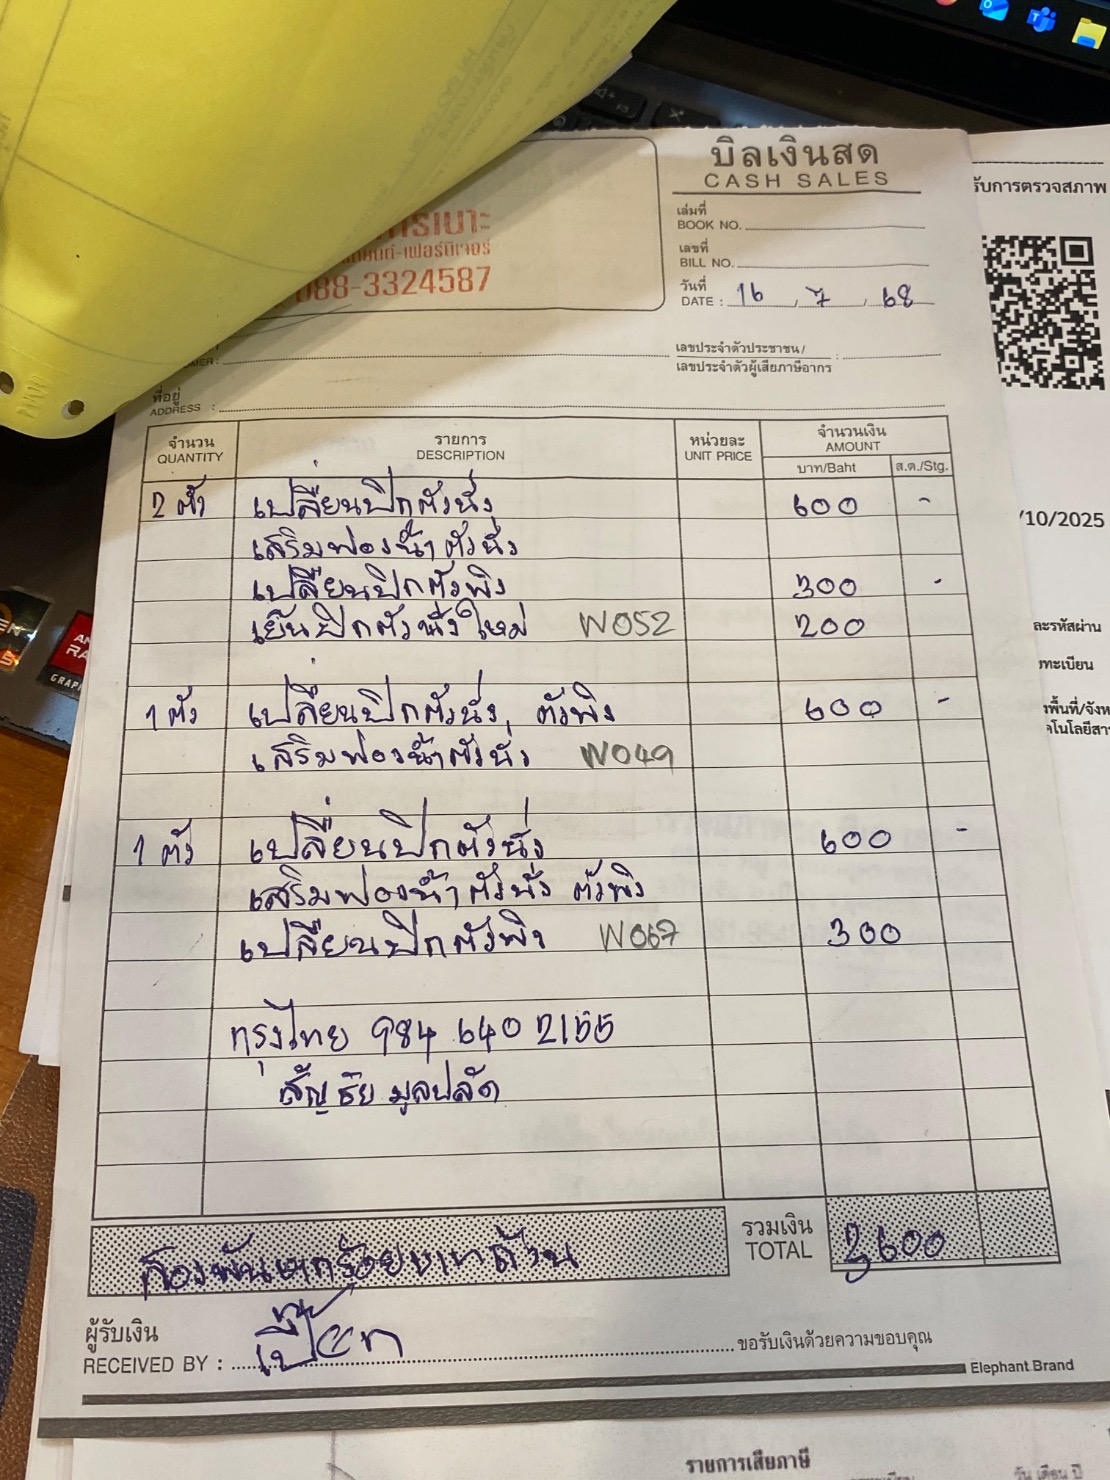 บิลเงินสด
CASH SALES
รเบาะ
-เฟอร์นิเจอร์
088-3324587
เล่มที่
BOOK NO.
เลขที่
BILL NO.
วันที่
DATE : 16 , 7 , 68
เลขประจำตัวประชาชน/
เลขประจำตัวผู้เสียภาษีอากร :
ที่อยู่
ADDRESS :
จำนวน รายการ หน่วยละ จำนวนเงิน
QUANTITY DESCRIPTION UNIT PRICE AMOUNT
บาท/Baht ส.ต./Stg.
2 ตัว เปลี่ยนปีกตัวนั่ง 600 -
เสริมฟองน้ำตัวนั่ง
เปลี่ยนปีกตัวพิง 300 -
เย็บปีกตัวนั่งใหม่ W052 200
1 ตัว เปลี่ยนปีกตัวนั่ง, ตัวพิง 600 -
เสริมฟองน้ำตัวนั่ง W049
1 ตัว เปลี่ยนปีกตัวนั่ง 600 -
เสริมฟองน้ำตัวนั่ง ตัวพิง
เปลี่ยนปีกตัวพิง W067 300
กรุงไทย 984 640 2155
สัญชัย มูลปลัด
รวมเงิน
TOTAL 2,600
สองพันหกร้อยบาทถ้วน
ผู้รับเงิน
RECEIVED BY : ขอรับเงินด้วยความขอบคุณ
Elephant Brand
รับการตรวจสภาพ
/10/2025
ละรหัสผ่าน
ทะเบียน
พื้นที่/จังห
โนโลยีสาร
รายการเสียภาษี
วัน เดือน ปี